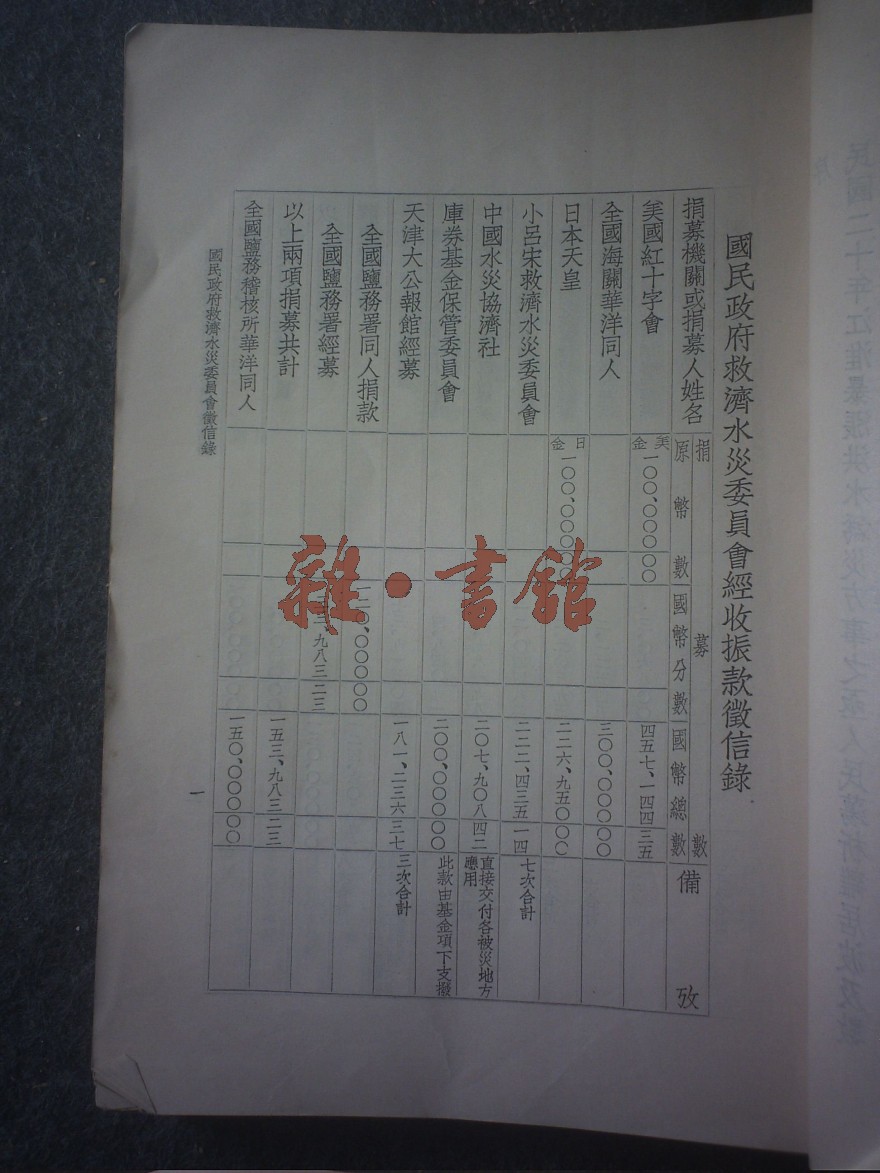 國民政府救濟水災委員會經收振款徵信錄
捐募機關或捐募人姓名 捐募數 原幣數 國幣分數 國幣總數 備攷
美國紅十字會 美金一〇〇、〇〇〇〇〇 四五七、一四四三五
全國海關華洋同人 三〇〇、〇〇〇〇〇
日本天皇 日金一〇〇、〇〇〇〇〇 二二六、九五〇〇〇
小呂宋救濟水災委員會 二二二、四三五一四 七次合計
中國水災協濟社 二〇七、九〇八四二 直接交付各被災地方應用
庫券基金保管委員會 二〇〇、〇〇〇〇〇 此款由基金項下支撥
天津大公報館經募 一八一、二三六三七 三次合計
全國鹽務署同人捐款 一二〇、〇〇〇〇〇
全國鹽務署經募 三、九八三二三
以上兩項捐募共計 一五三、九八三二三
全國鹽務稽核所華洋同人 一五〇、〇〇〇〇〇
國民政府救濟水災委員會徵信錄
一
雜·書館